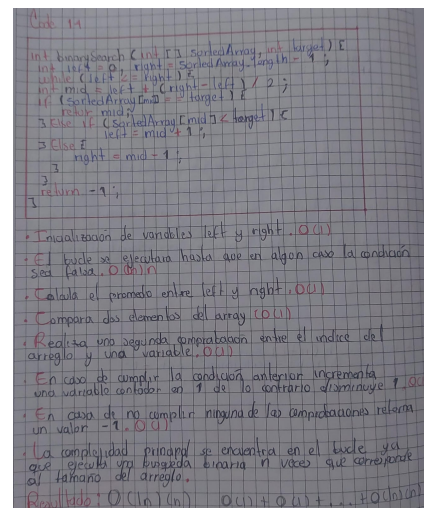 Code 1.1
int binarySearch (int [] sortedArray, int target) {
int left = 0, right = sortedArray.length - 1;
while (left <= right) {
int mid = left + (right - left) / 2;
if (sortedArray[mid] == target) {
return mid;
} Else if (sortedArray[mid] < target) {
left = mid + 1;
} Else {
right = mid - 1;
}
}
return -1;
}
· Inicialización de variables left y right. O(1)
· El bucle se ejecutara hasta que en algun caso la condición
sea falsa. n
· Calcula el promedo entre left y right. O(1)
· Compara dos elementos del array (O(1)
· Realiza una segunda comprobación entre el indice del
arreglo y una variable. O(1)
· En caso de cumplir la condición anterior incrementa
una variable contador en 1 de lo contrario disminuye 1
· En casa de no cumplir ninguna de las comprobaciones retorna
un valor -1. O(1)
· La complejidad principal se encuentra en el bucle ya
que ejecuta una busqueda binaria n veces que corresponde
al tamaño del arreglo.
Resultado: O(ln)(n) O(1) + O(1) + ... + O(ln)(n)